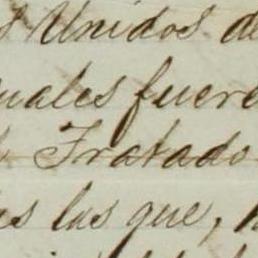 Unidos de
uales fuere
Tratado
las que,